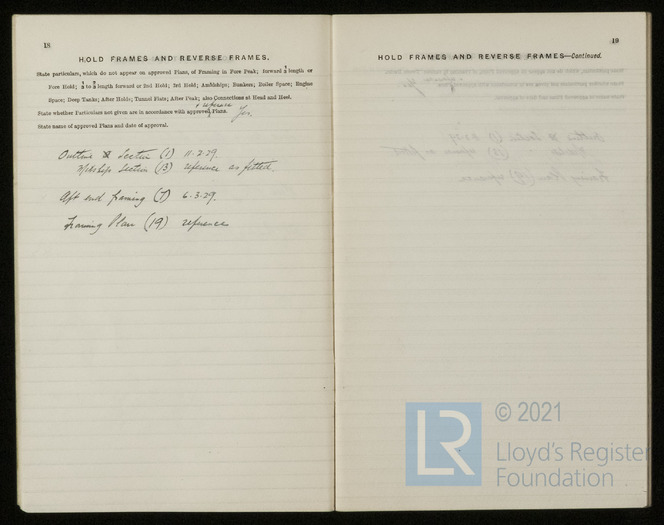 18
HOLD FRAMES AND REVERSE FRAMES.
State particulars, which do not appear on approved Plans, of Framing in Fore Peak; forward ¼ length or
Fore Hold; ¼ to ½ length forward or 2nd Hold; 3rd Hold; Amidships; Bunkers; Boiler Space; Engine
Space; Deep Tanks; After Holds; Tunnel Flats; After Peak; also Connections at Head and Heel.
& reference
State whether Particulars not given are in accordance with approved Plans. Yes.
State name of approved Plans and date of approval.
Outline & Section (1) 11.2.29.
M'ships Section (13) reference as fitted.
Aft end framing (7) 6.3.29.
Framing Plan (19) reference
19
HOLD FRAMES AND REVERSE FRAMES—Continued.
LR
© 2021
Lloyd's Register
Foundation